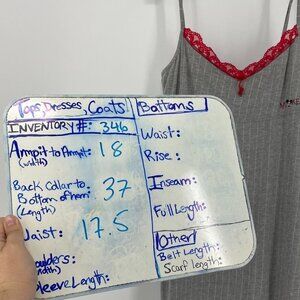 Tops, Dresses, Coats
INVENTORY #: 346
Armpit to Armpit: 18
(width)
Back Collar to
Bottom of hem: 37
(Length)
Waist: 17.5
houlders:
(width)
Sleeve Length:
Bottoms
Waist:
Rise:
Inseam:
Full Length:
Other
Belt Length:
Scarf length: